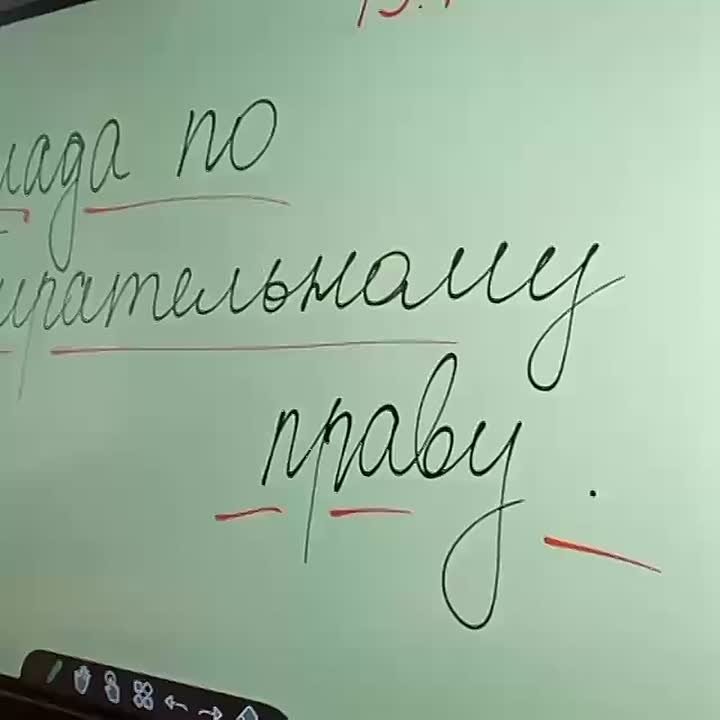 лада по
ирательному
праву.